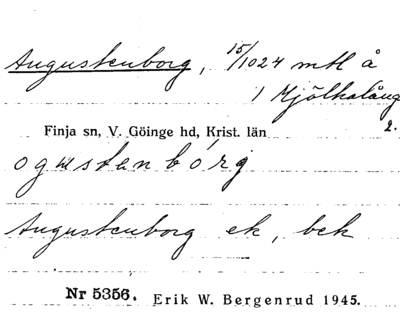 Augustenborg, 15/1024 mtl å
1 Mjölkalånga
2.
Finja sn, V. Göinge hd, Krist. län
ogustenbórg
Augustenborg ek, bek
Nr 5356. Erik W. Bergenrud 1945.